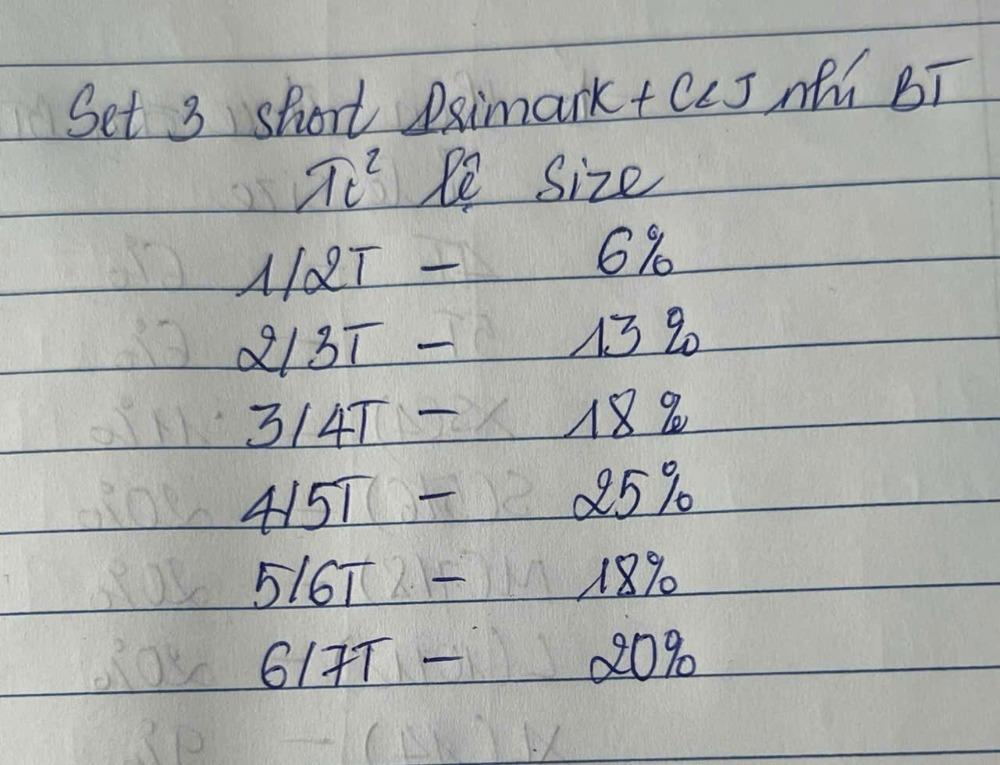 Set 3 short Primark + C&J nhí BT
Tỉ² lệ Size
1/2T - 6%
2/3T - 13%
3/4T - 18%
4/5T - 25%
5/6T - 18%
6/7T - 20%